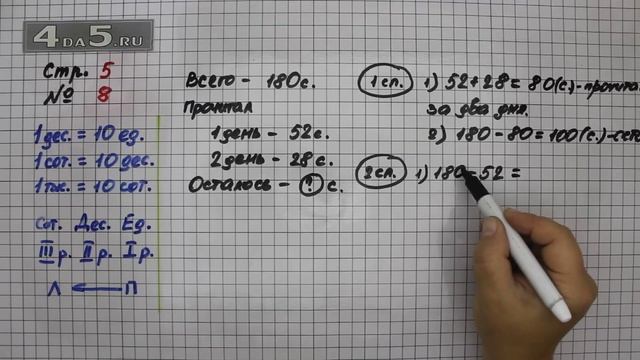 4DA5.RU
Стр. 5
№ 8
1 дес. = 10 ед.
1 сот. = 10 дес.
1 тыс. = 10 сот.
Сот. Дес. Ед.
III р. II р. I р.
Л ← П
Всего - 180 с.
Прочитал
1 день - 52 с.
2 день - 28 с.
Осталось - ? с.
1 сп. 1) 52+28= 80(с.)-прочита
за два дня.
2) 180-80=100(с.)-оста
2 сп. 1) 180-52=